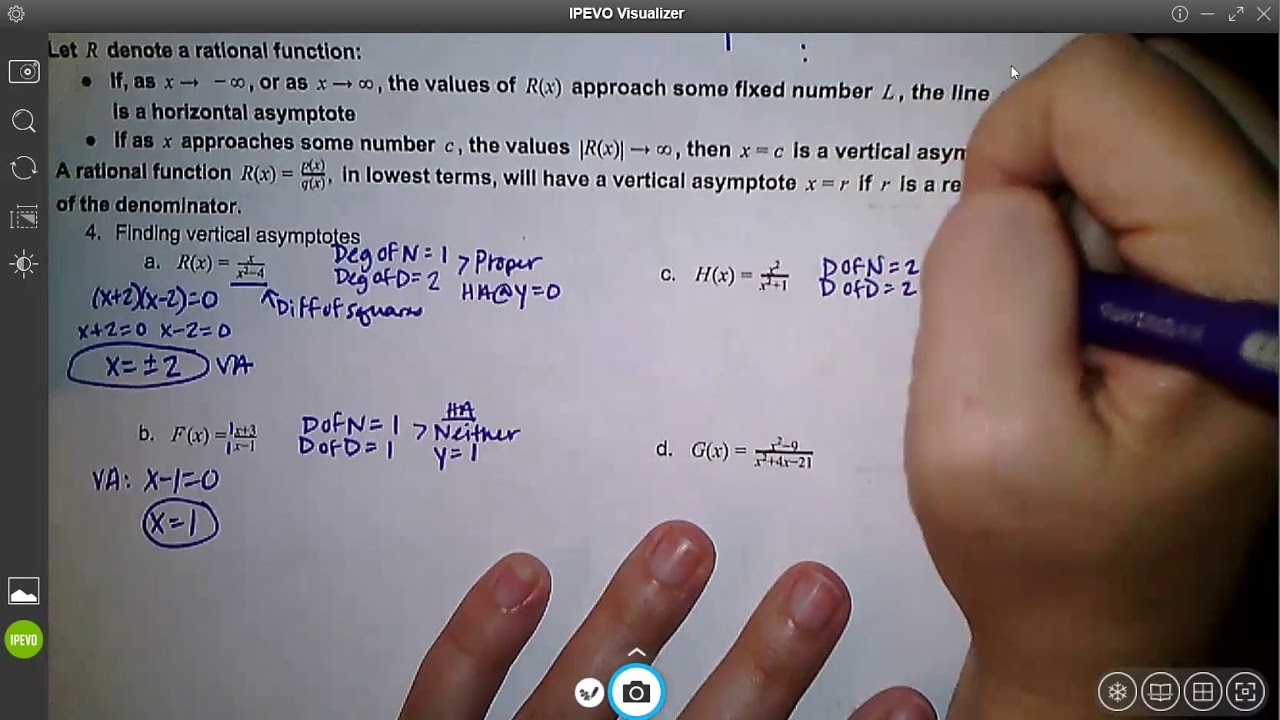 IPEVO Visualizer
Let R denote a rational function:
• If, as x → −∞, or as x → ∞, the values of R(x) approach some fixed number L, the line
is a horizontal asymptote
• If as x approaches some number c, the values |R(x)| → ∞, then x = c is a vertical asym
A rational function R(x) = p(x)/q(x), in lowest terms, will have a vertical asymptote x = r if r is a re
of the denominator.
4. Finding vertical asymptotes
a. R(x) = x/(x²−4)
Deg of N = 1 > Proper
Deg of D = 2 HA@Y=0
(x+2)(x-2)=0 ↑Diff of squares
x+2=0 x-2=0
x=±2 VA
b. F(x) = (1x+3)/(1x−1)
D of N = 1 > HA
D of D = 1 Neither
y=1
VA: x-1=0
x=1
c. H(x) = x²/(x²+1)
D of N = 2
D of D = 2
d. G(x) = (x²−9)/(x²+4x−21)
IPEVO